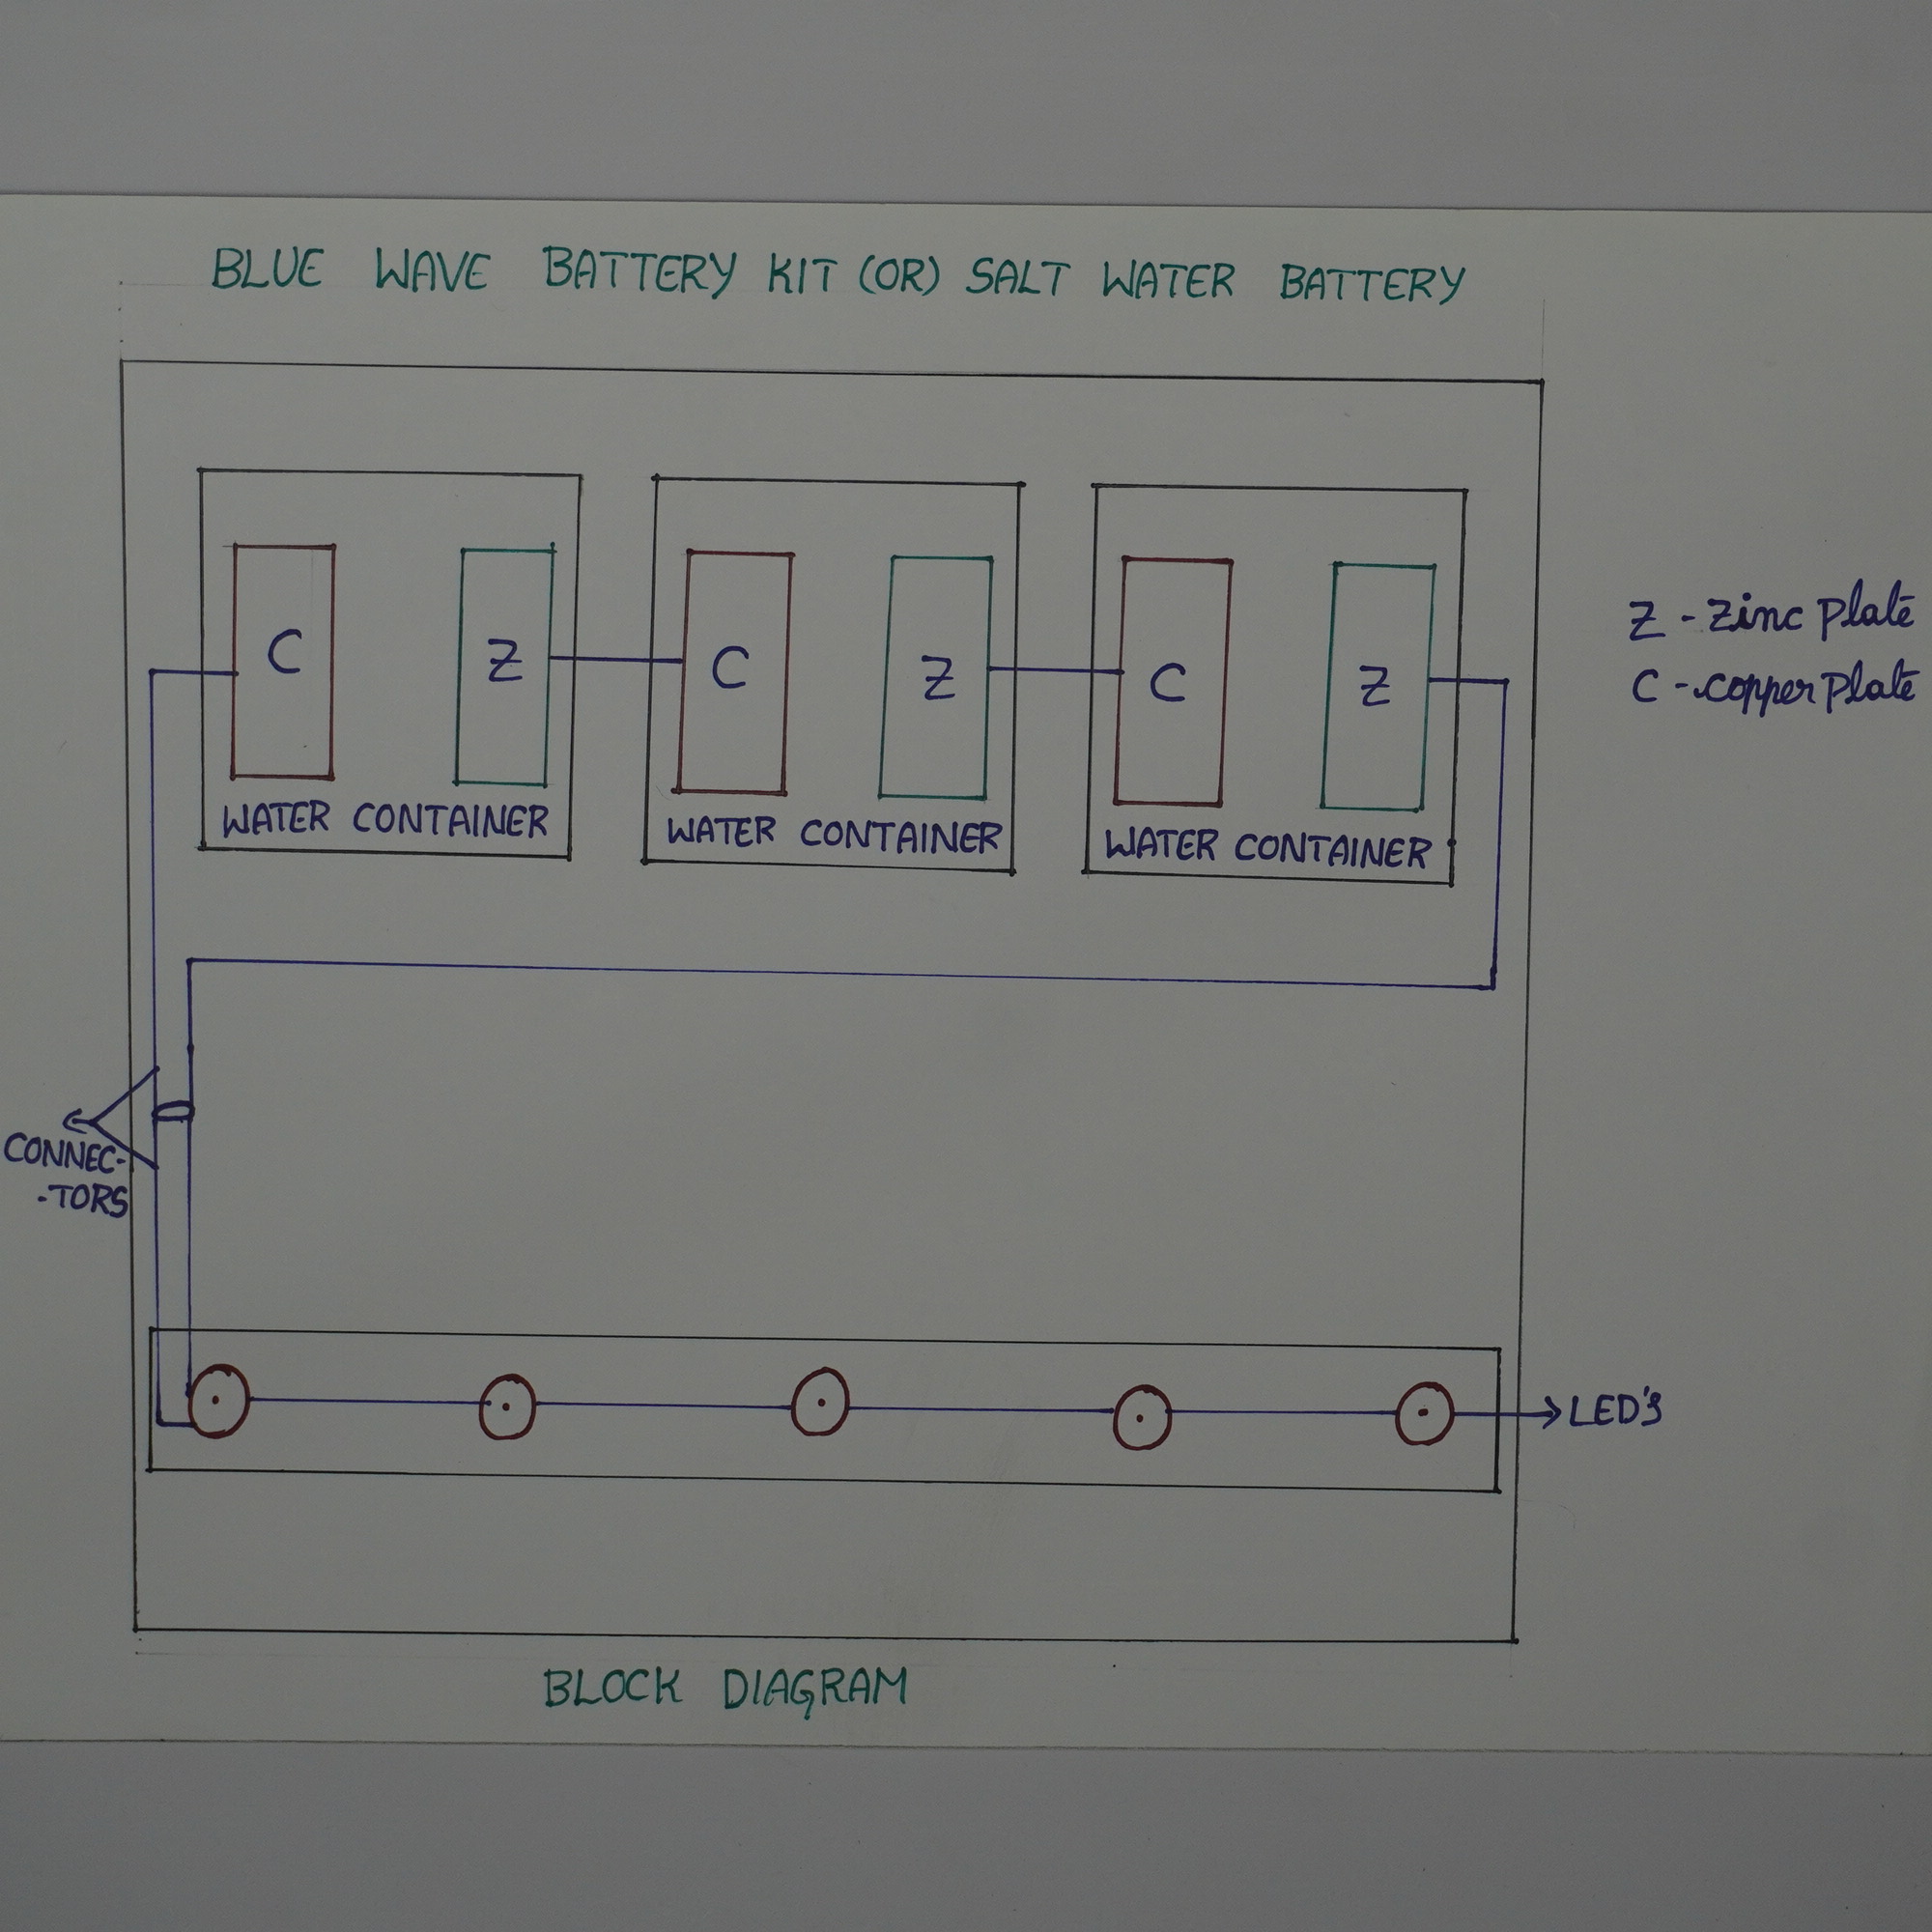 BLUE WAVE BATTERY KIT (OR) SALT WATER BATTERY
C Z C Z C Z
WATER CONTAINER WATER CONTAINER WATER CONTAINER
Z - Zinc Plate
C - Copper Plate
CONNEC-
-TORS
LED'S
BLOCK DIAGRAM